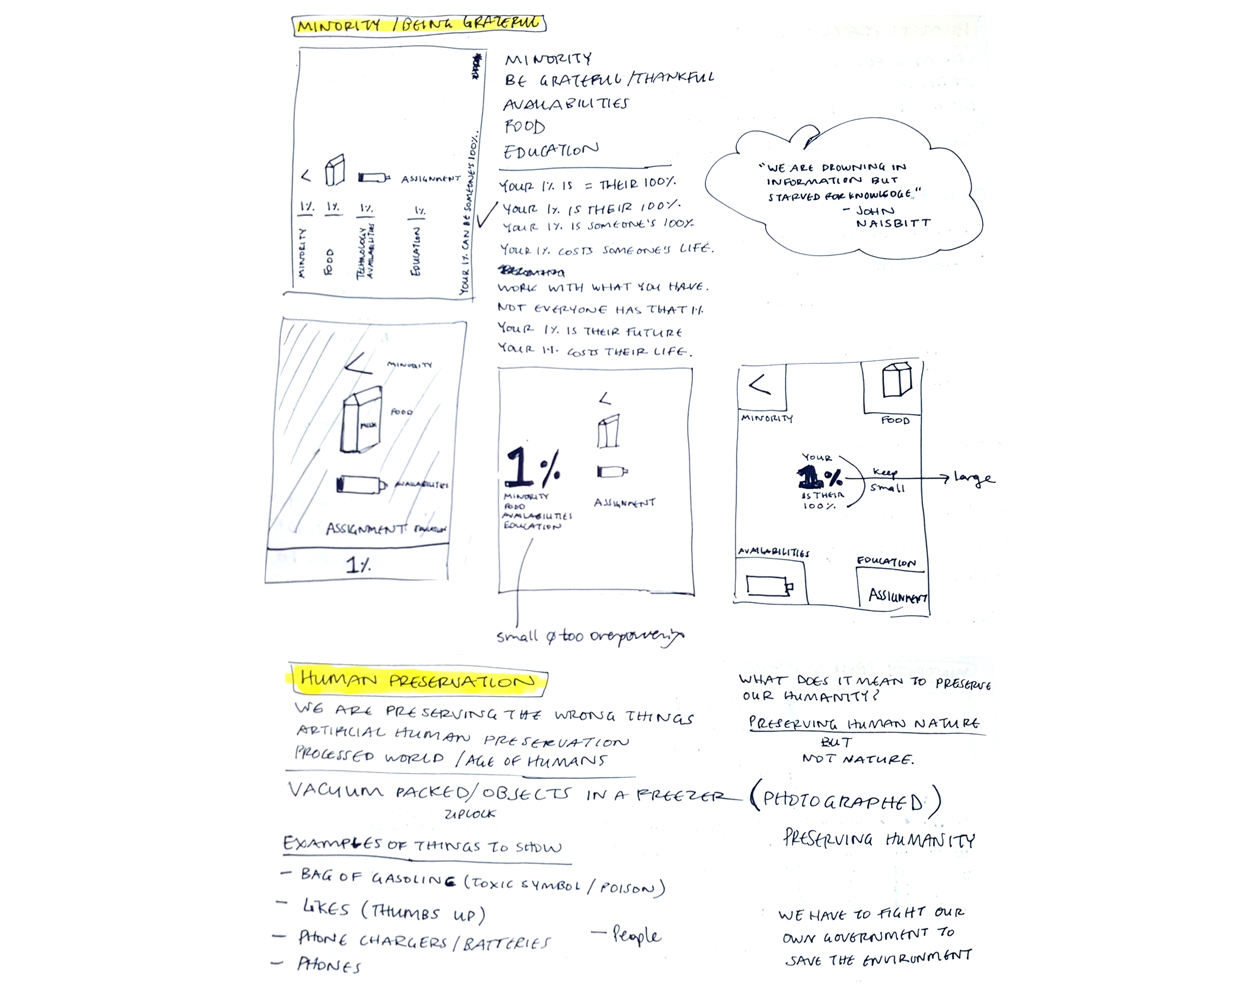 MINORITY / BEING GRATEFUL
MINORITY
BE GRATEFUL / THANKFUL
AVAILABILITIES
FOOD
EDUCATION
YOUR 1% IS = THEIR 100%.
YOUR 1% IS THEIR 100%.
YOUR 1% IS SOMEONE'S 100%
YOUR 1% COSTS SOMEONE'S LIFE.
WORK WITH WHAT YOU HAVE.
NOT EVERYONE HAS THAT 1%
YOUR 1% IS THEIR FUTURE
YOUR 1% COSTS THEIR LIFE.
<
ASSIGNMENT
1%
1%
1%
1%
MINORITY
FOOD
TECHNOLOGY
AVAILABILITIES
EDUCATION
YOUR 1% CAN BE SOMEONE'S 100%.
"WE ARE DROWNING IN
INFORMATION BUT
STARVED FOR KNOWLEDGE."
- JOHN
NAISBITT
< MINORITY
MILK
FOOD
AVAILABILITIES
ASSIGNMENT EDUCATION
1%
<
1%
MINORITY
FOOD
AVAILABILITIES
EDUCATION
ASSIGNMENT
small & too overpowering
<
MINORITY
FOOD
YOUR
1%
IS THEIR
100%.
keep
small
large
AVAILABILITIES
EDUCATION
ASSIGNMENT
HUMAN PRESERVATION
WE ARE PRESERVING THE WRONG THINGS
ARTIFICIAL HUMAN PRESERVATION
PROCESSED WORLD / AGE OF HUMANS
VACUUM PACKED / OBJECTS IN A FREEZER — (PHOTOGRAPHED)
ZIPLOCK
EXAMPLES OF THINGS TO SHOW
- BAG OF GASOLINE (TOXIC SYMBOL / POISON)
- LIKES (THUMBS UP)
- PHONE CHARGERS / BATTERIES
- PHONES
- People
WHAT DOES IT MEAN TO PRESERVE
OUR HUMANITY?
PRESERVING HUMAN NATURE
BUT
NOT NATURE.
PRESERVING HUMANITY
WE HAVE TO FIGHT OUR
OWN GOVERNMENT TO
SAVE THE ENVIRONMENT